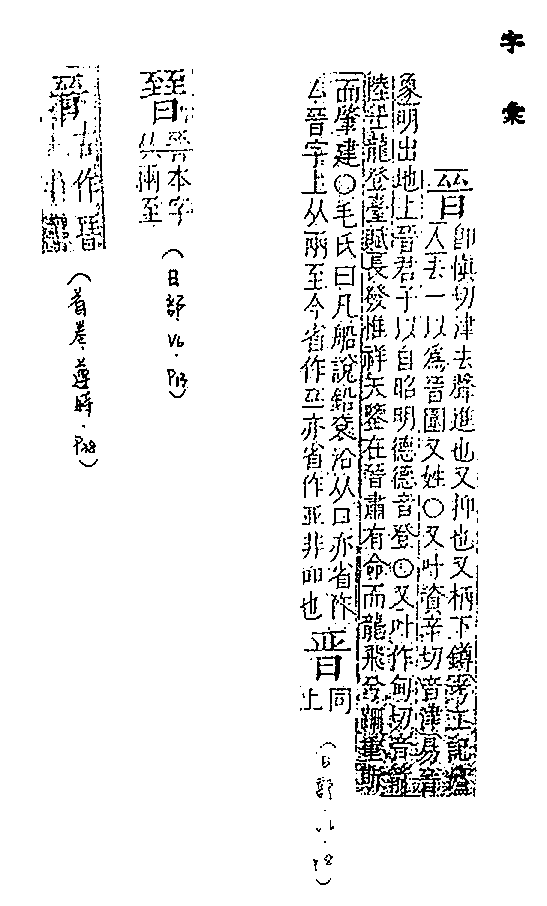 字彙
晉 即慎切津去聲進也又抑也又柄下鐏考工記廬
人去一以爲晉圍又姓○又叶資辛切音津易晉
象明出地上晉君子以自昭明德德音登○又叶作甸切音箭
陸士龍登臺賦長發惟祥天鑒在晉肅有命而龍飛兮躋重斯
而肇建○毛氏曰凡船說鉛袞沿从口亦省作
厶晉字上从兩至今省作 亦省作 非 也
晋
同上
(日部.V6.P8)
晉本字
从兩至
(日部V6.P13)
晉 古作
(首卷.遵時.P28)